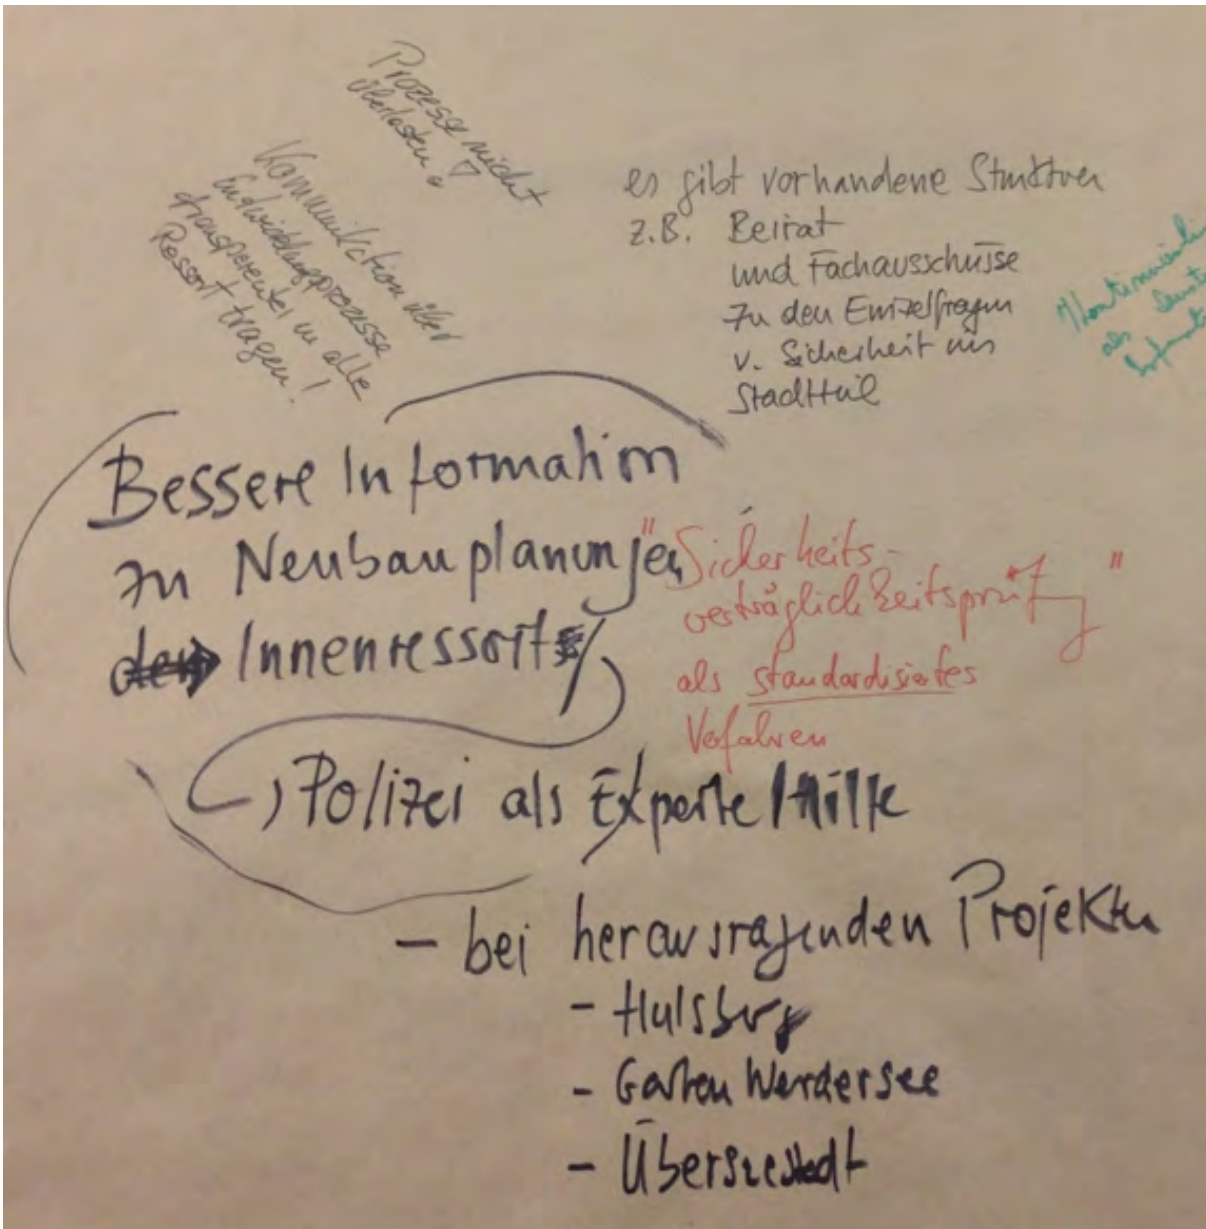 Prozesse nicht
überlasten!
Kommunikation über
Entwicklungsprozesse
transparenter in alle
Ressort tragen!
es gibt vorhandene Strukturen
z.B. Beirat
und Fachausschüsse
zu den Einzelfragen
v. Sicherheit im
Stadtteil
als
Bessere Information
zu Neubauplanungen
Innenressorts
"Sicherheits-
verträglichkeitsprüfg"
als standardisiertes
Verfahren
Polizei als Experte / Hilfe
- bei herausragenden Projekten
- Hulsberg
- Garten Werdersee
- Überseestadt